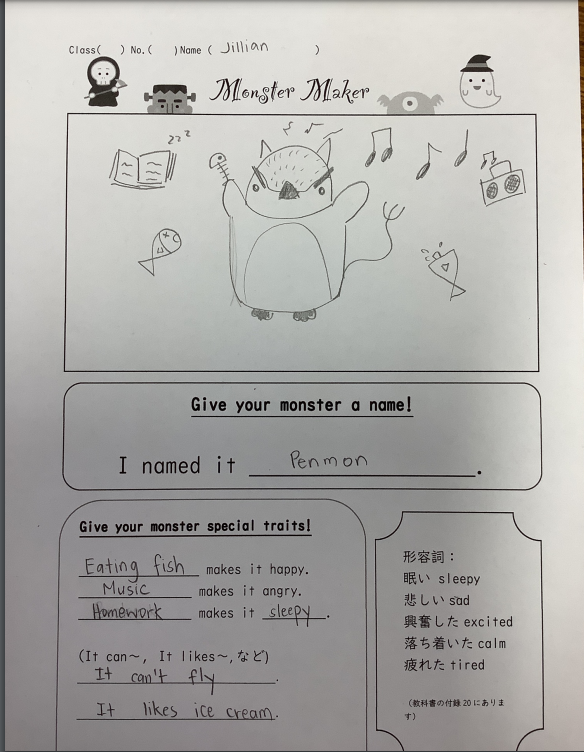 Class(  ) No.(  )Name ( Jillian )
Monster Maker
zzz
Give your monster a name!
I named it Penmon.
Give your monster special traits!
Eating fish makes it happy.
Music makes it angry.
Homework makes it sleepy.
(It can～, It likes～,など)
It can't fly.
It likes ice cream.
形容詞：
眠い sleepy
悲しい sad
興奮した excited
落ち着いた calm
疲れた tired
（教科書の付録 20 にありま
す）